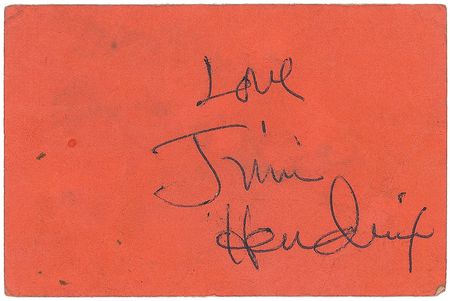 Love
Jimi
Hendrix